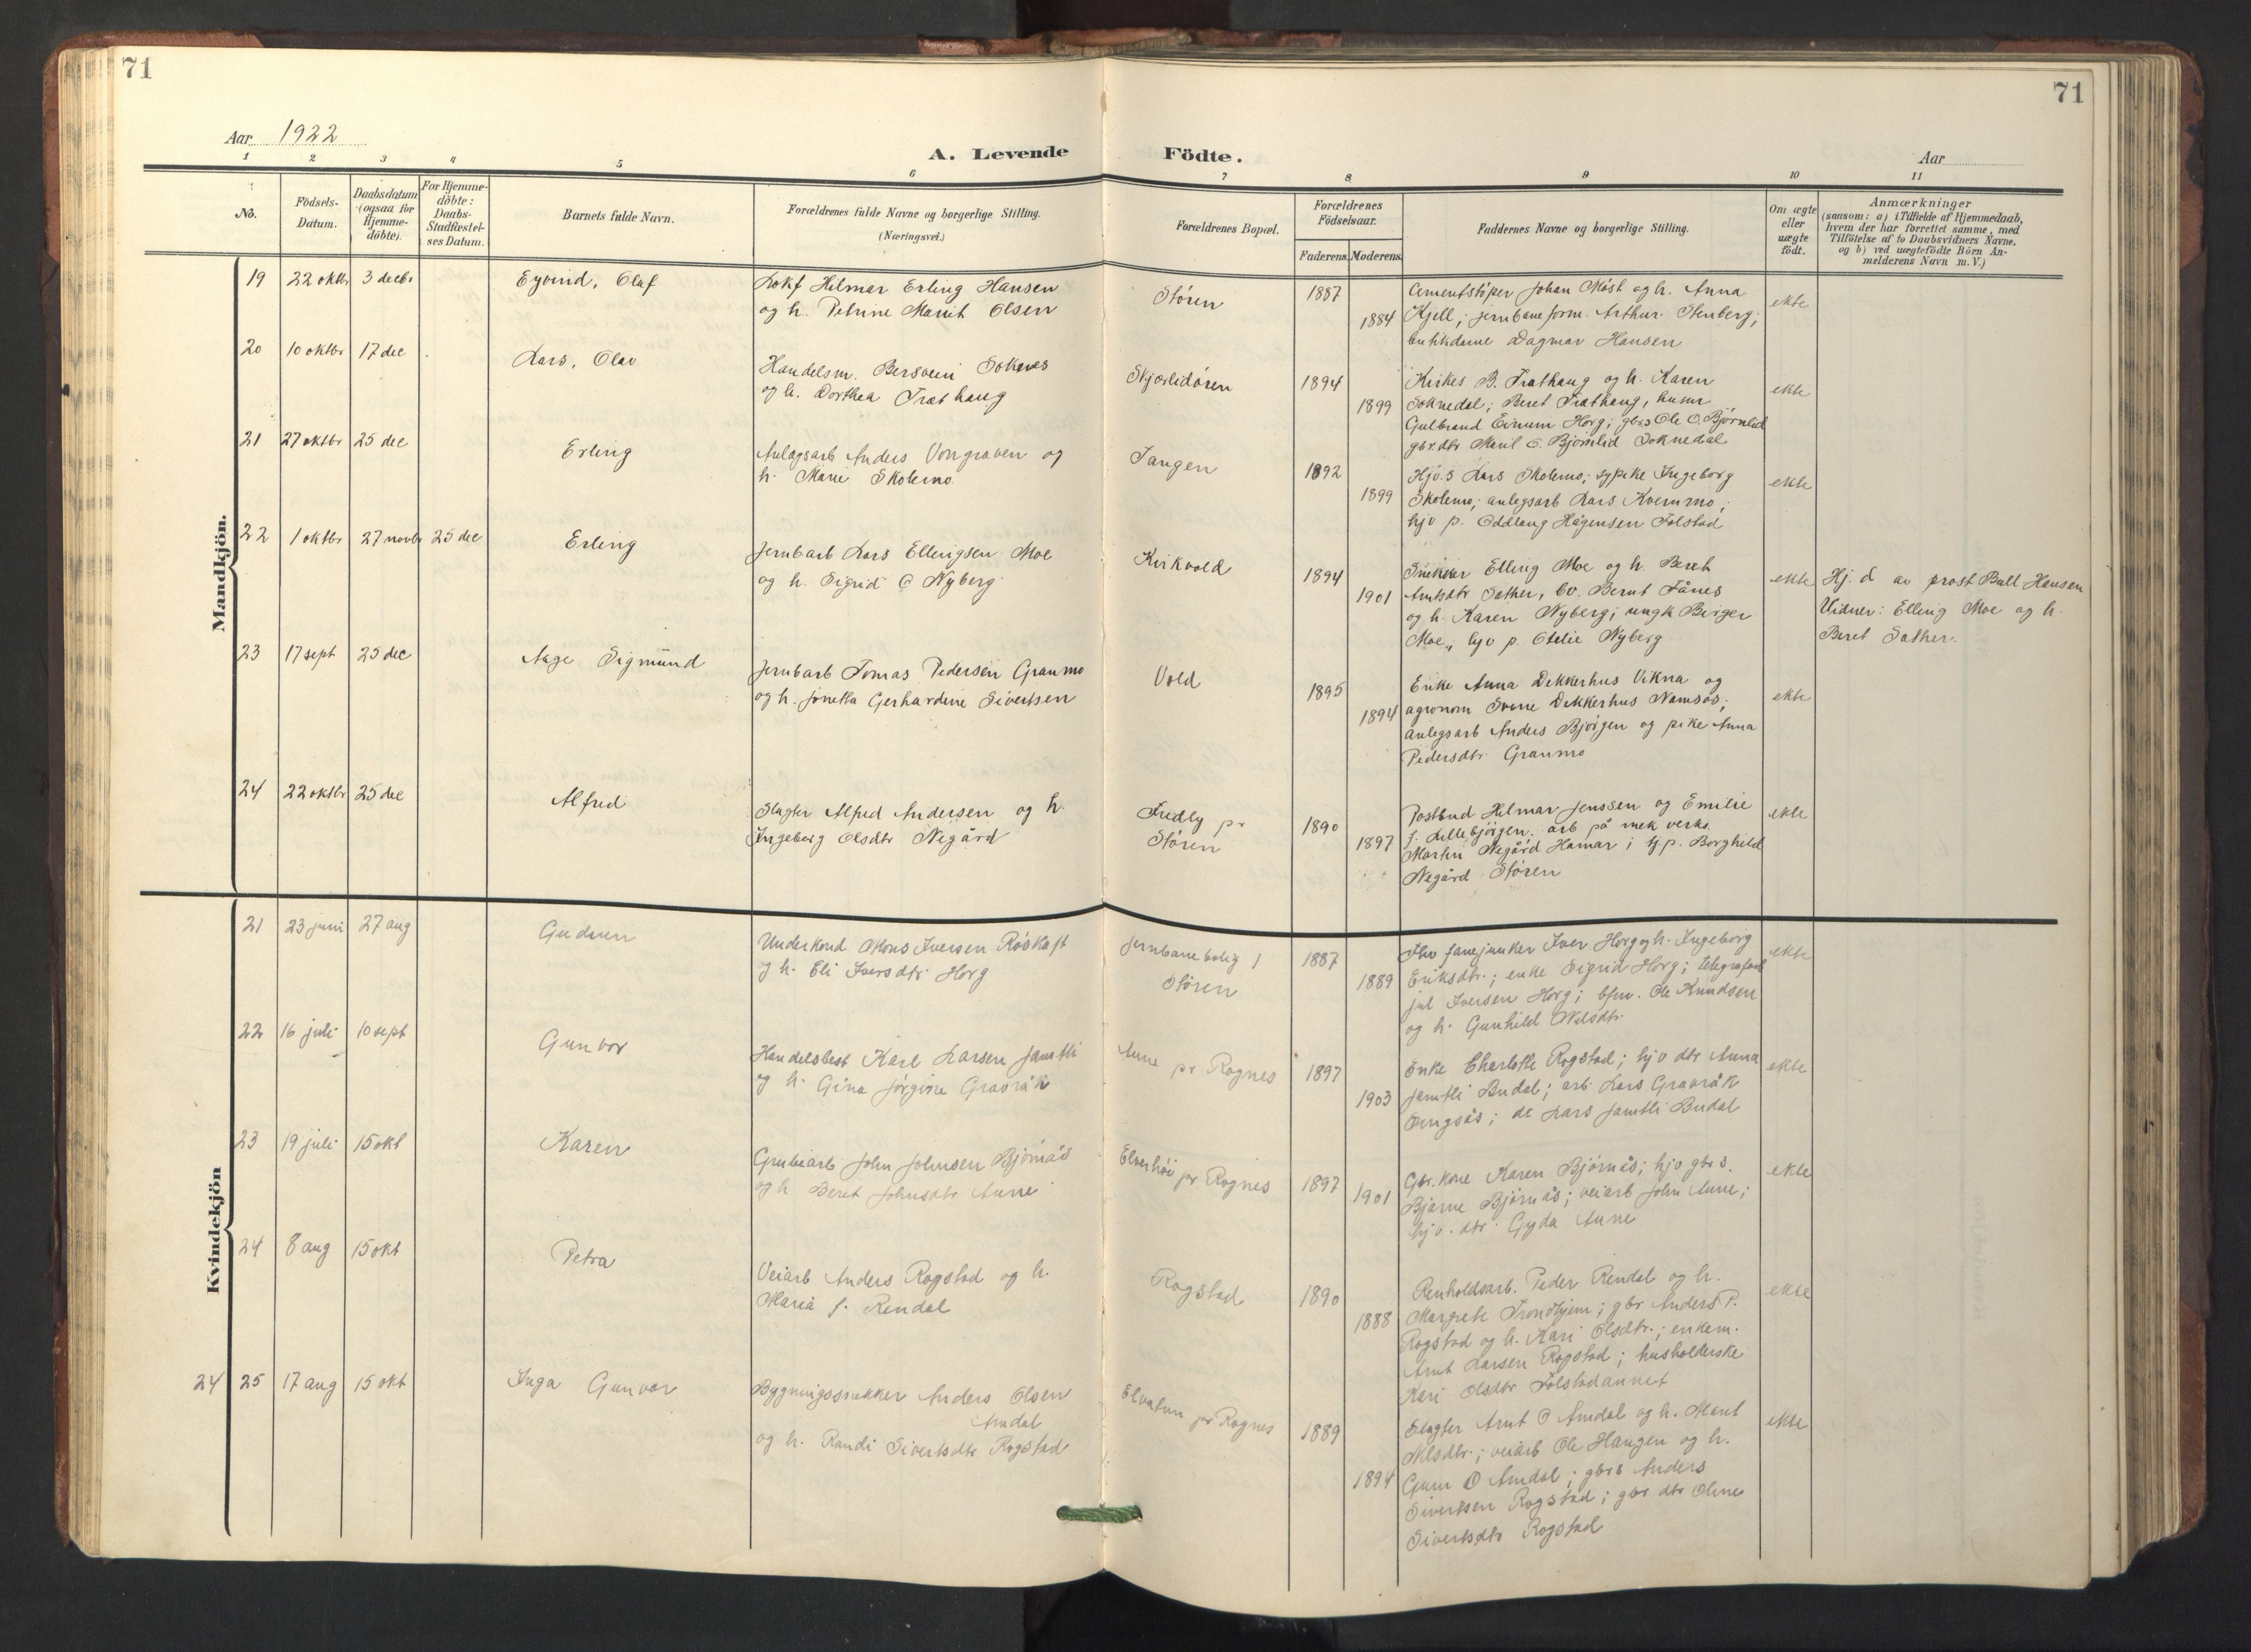 71
71
Aar 1922
A. Levende Födte.
Aar
1 2 3 4 5 6 7 8 9 10 11
No.
Födsels-
Datum.
Daabsdatum
(ogsaa for
Hjemme-
döbte).
For Hjemme-
döbte:
Daabs-
Stadfæstel-
ses Datum.
Barnets fulde Navn.
Forældrenes fulde Navne og borgerlige Stilling.
(Næringsvei.)
Forældrenes Bopæl.
Forældrenes
Födselsaar.
Faderens. Moderens.
Faddernes Navne og borgerlige Stilling.
Om ægte
eller
uægte
födt.
Anmærkninger
(saasom: a) i Tilfælde af Hjemmedaab,
hvem der har forrettet samme, med
Tilföielse af to Daabsvidners Navne,
og b) ved uægtefödte Börn An-
melderens Navn m. V.)
Mandkjön.
19 22 oktbr 3 decbr
Eyvind, Olaf
Lokf Hilmar Erling Hansen
og h. Petrine Marit Olsen
Støren
1887
1884
Cementstøper Johan Møst og h. Anna
Kjell; jernbaneform. Arthur Stenberg;
butikdame Dagmar Hansen
ekte
20 10 oktbr 17 dec
Lars, Olav
Handelsm. Bersvein Soknes
og h. Dorthea Træthaug
Skjærlidøren
1894
1899
Kirkes. B. Træthaug og h. Karen
Soknedal; Beret Træthaug, husm
Gulbrand Einum Horg; gbr.s Ole O. Bjørnlid
gbr.dtr Marit O. Bjørnlid Soknedal
ekte
21 27 oktbr 25 dec
Erling
Anlegsarb Anders Vongraven og
h. Marie Skolemo
Tangen
1892
1899
Hjv.s Lars Skolemo; sypike Ingeborg
Skolemo; anlegsarb Lars Kvernmo;
hjv p. Oddlaug Hågensen Folstad
ekte
22 1 oktbr 27 novbr 25 dec
Erling
Jernbarb Lars Ellingsen Moe
og h. Sigrid O Nyberg
Kirkvold
1894
1901
Snekker Elling Moe og h. Beret
Arntsdtr Sæther, bv. Bernt Fånes
og h. Karen Nyberg; ungk Birger
Moe; hjv p. Otelie Nyberg
ekte
Hj. d av prost Bull Hansen
Vidner: Elling Moe og h.
Beret Sæther.
23 17 sept 25 dec
Aage Sigmund
Jernbarb Tomas Pedersen Granmo
og h. Jonetta Gerhardine Sivertsen
Vold
1895
1894
Enke Anna Dekkerhus Vikna og
agronom Sverre Dekkerhus Namsos;
anlegsarb Anders Bjørgen og pike Anna
Pedersdtr Granmo
ekte
24 22 oktbr 25 dec
Alfred
Slagter Alfred Andersen og h.
Ingeborg Olsdtr Negård
Fredly pr
Støren
1890
1897
Postbud Hilmar Jenssen og Emilie
J. Lillebjørgen. arb på mek verks.
Martin Negård Hamar; tj.p. Borghild
Negård Støren
ekte
Kvindekjön
21 23 juni 27 aug
Gudrun
Underkond Mons Iversen Røskaft
og h. Eli Iversdtr Horg
Jernbanebolig 1
Støren
1887
1889
Fhv fanejunker Iver Horg og h. Ingeborg
Eriksdtr.; enke Sigrid Horg; telegrafast
Jul Iversen Horg; bfm. Ole Knudsen
og h. Gunhild Nilsdtr.
ekte
22 16 juli 10 sept
Gunvor
Handelsbest Karl Larsen Jamtli
og h. Gina Jørgine Gravråk
Aune pr Rognes
1897
1903
Enke Charlotte Rogstad; hjv dtr Anna
Jamtli Budal; arb. Lars Gravråk
Engsås; do Lars Jamtli Budal
ekte
23 19 juli 15 okt
Karen
Grubearb John Johnsen Bjørnås
og h Beret Johnsdtr Aune
Elverhøi pr Rognes
1897
1901
Gbr. kone Karen Bjørnås; hjv gbr s.
Bjarne Bjørnås; veiarb John Aune;
hjv. dtr. Gyda Aune
ekte
24 8 aug 15 okt
Petra
Veiarb Anders Rogstad og h.
Maria J. Rendal
Rogstad
1890
1888
Renholdsarb. Peder Rendal og h.
Margrete Trondhjem; gbr Anders P.
Rogstad og h. Kari Olsdtr.; enkem.
Arnt Larsen Rogstad; husholderske
Kari Olsdtr Folstadaunet
ekte
24 25 17 aug 15 okt
Inga Gunvor
Bygningssnekker Anders Olsen
Amdal
og h. Randi Sivertsdtr Rogstad
Elvatun pr Rognes
1889
1894
Slagter Arnt O Amdal og h. Marit
Nilsdtr.; veiarb Ole Haugen og h.
Guru O Amdal; gbrs Anders
Sivertsen Rogstad; gbr dtr Oline
Sivertsdtr Rogstad
ekte